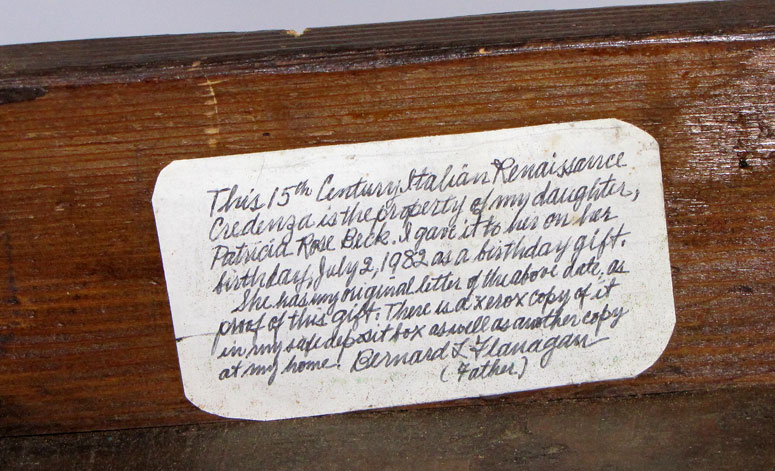 This 15th Century Italian Renaissance
Credenza is the property of my daughter,
Patricia Rose Beck. I gave it to her on her
birthday, July 2, 1982 as a birthday gift.
She has my original letter of the above date, as
proof of this gift. There is a xerox copy of it
in my safe deposit box as well as another copy
at my home. Bernard L Flanagan
(Father)